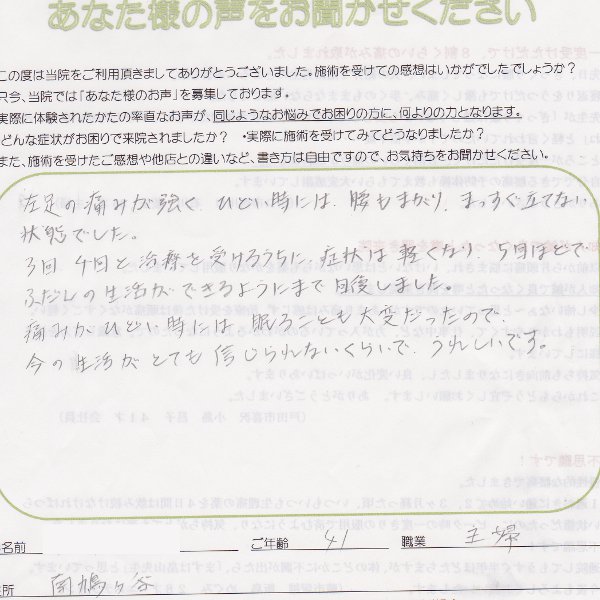 あなた様の声をお聞かせください
この度は当院をご利用頂きましてありがとうございました。施術を受けての感想はいかがでしたでしょうか?
只今、当院では「あなた様のお声」を募集しております。
実際に体験されたかたの率直なお声が、同じようなお悩みでお困りの方に、何よりの力となります。
どんな症状がお困りで来院されましたか? ・実際に施術を受けてみてどうなりましたか?
また、施術を受けたご感想や他店との違いなど、書き方は自由ですので、お気持ちをお聞かせください。
左足の痛みが強く ひどい時には、腰もまがり、まっすぐ立てない
状態でした。
3回 4回と治療を受けるうちに、症状は軽くなり、5回ほどで
ふだんの生活ができるようにまで回復しました。
痛みがひどい時には 眠ることも大変だったので、
今の生活がとても信じられないくらいで、うれしいです。
名前 ご年齢 41 職業 主婦
所 南鳩ヶ谷